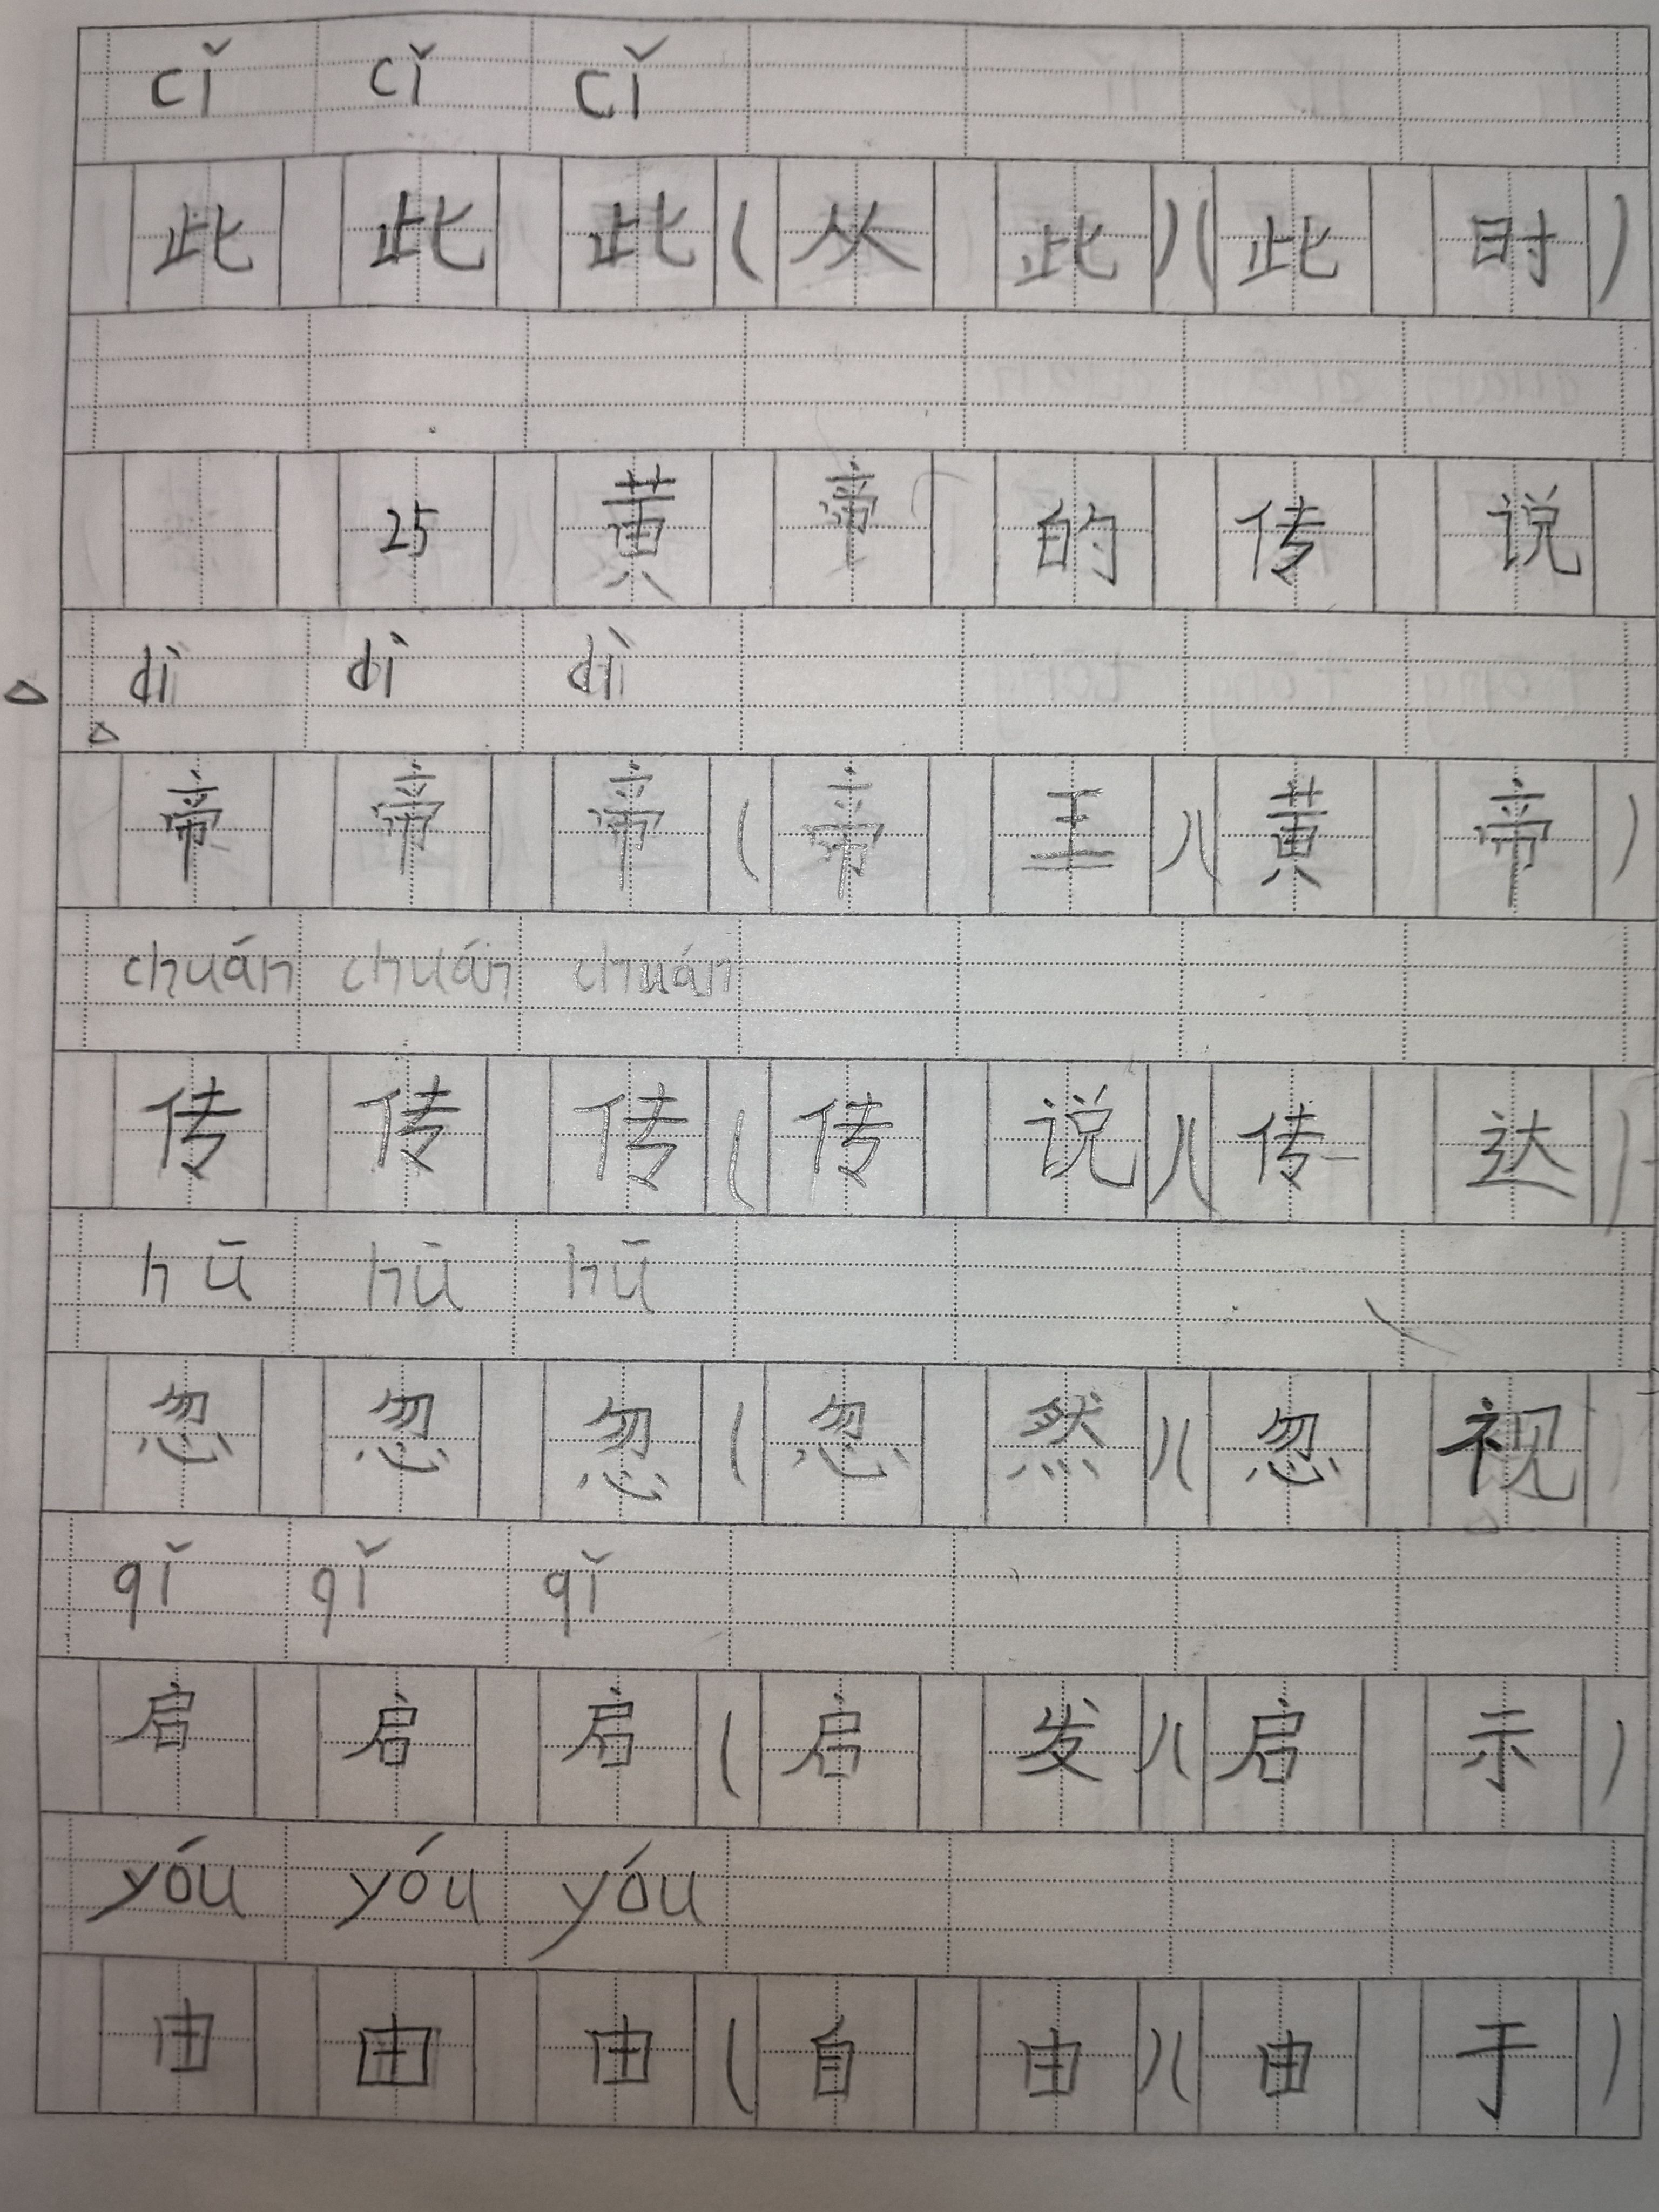 cǐ cǐ cǐ
此 此 此 ( 从 此 ) ( 此 时 )
25 黄 帝 的 传 说
dì dì dì
帝 帝 帝 ( 帝 王 ) ( 黄 帝 )
chuán chuán chuán
传 传 传 ( 传 说 ) ( 传 达 )
hū hū hū
忽 忽 忽 ( 忽 然 ) ( 忽 视 )
qǐ qǐ qǐ
启 启 启 ( 启 发 ) ( 启 示 )
yóu yóu yóu
由 由 由 ( 自 由 ) ( 由 于 )